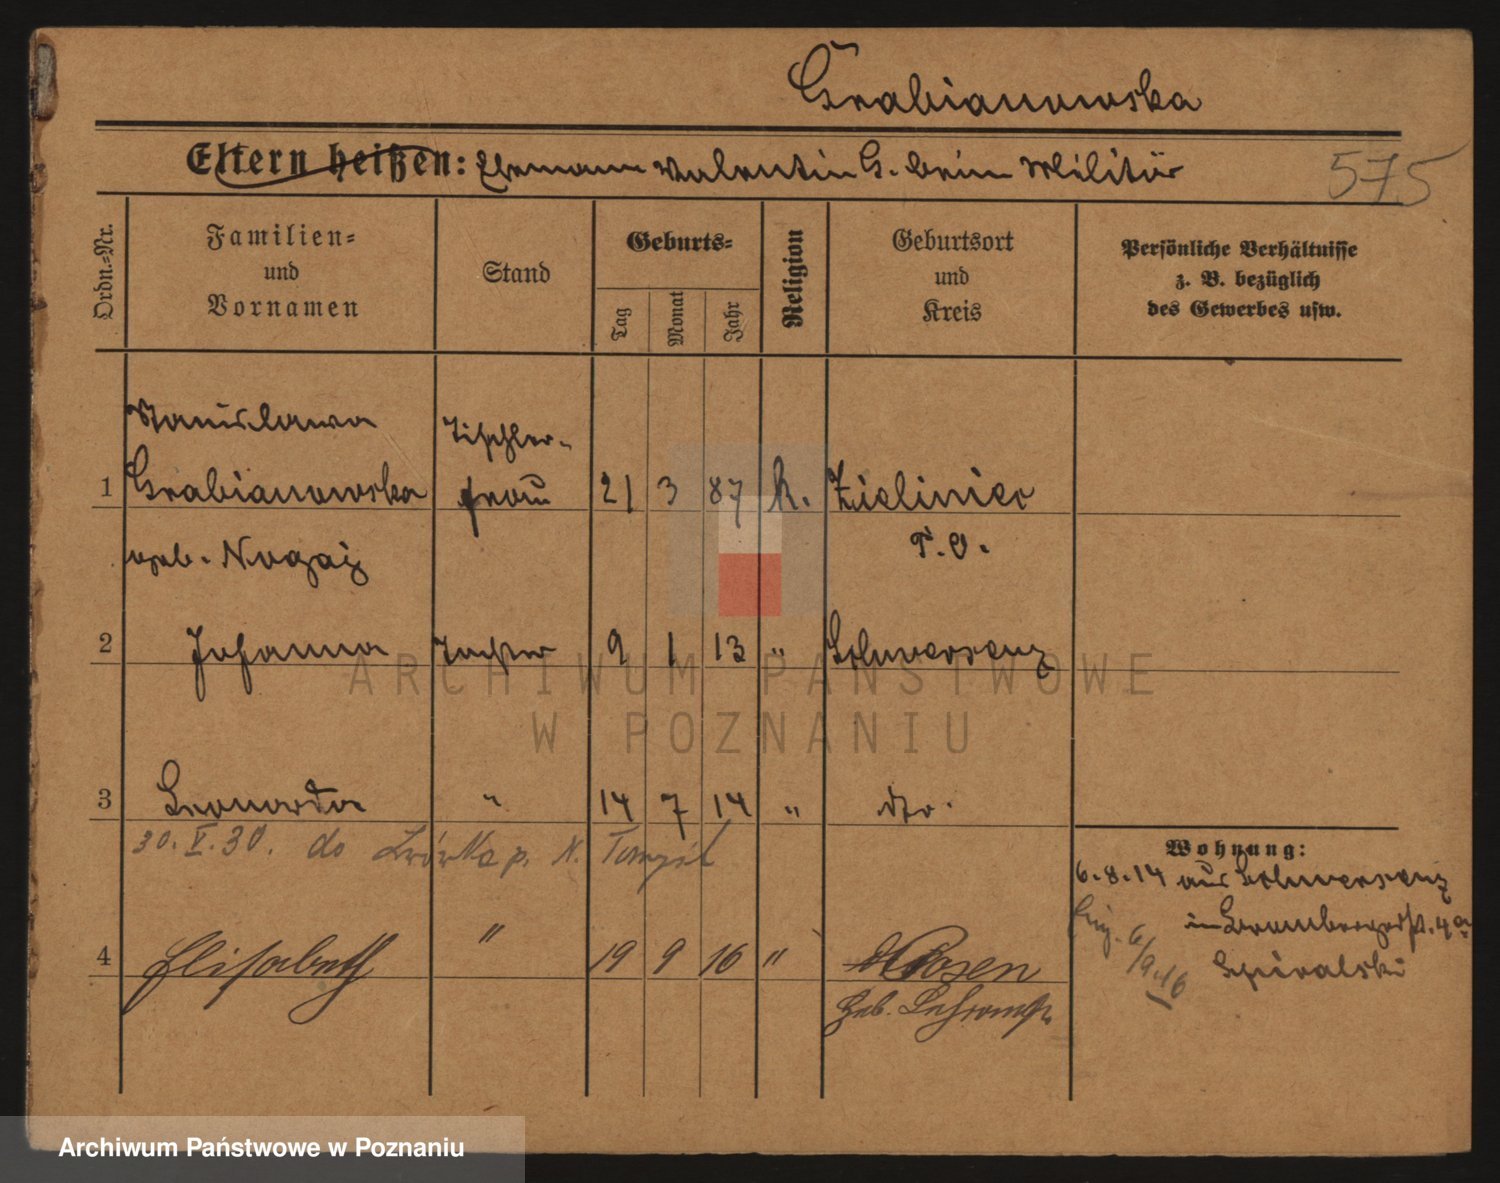 Grabianowska
Eltern heißen: Ehemann Valentin G. beim Militär
575
Ordn.-Nr.
Familien-
und
Vornamen
Stand
Geburts-
Tag
Monat
Jahr
Religion
Geburtsort
und
Kreis
Persönliche Verhältnisse
z. B. bezüglich
des Gewerbes usw.
Stanislawa
Tischler-
1 Grabianowska frau 21 3 87 k. Zieliniec
geb. Nogaj P. O.
2 Johanna Tochter 9 1 13 " Schwersenz
3 Leonarda " 14 7 14 " dto.
30. V. 30. do p. N. Tomyśl
Wohnung:
6.8.14 aus Schwersenz
in Brombergerstr. 4a
Spiralski
6/9.16
4 Elisabeth " 19 9 16 " Posen
Geb.
ARCHIWUM PAŃSTWOWE
W POZNANIU
Archiwum Państwowe w Poznaniu